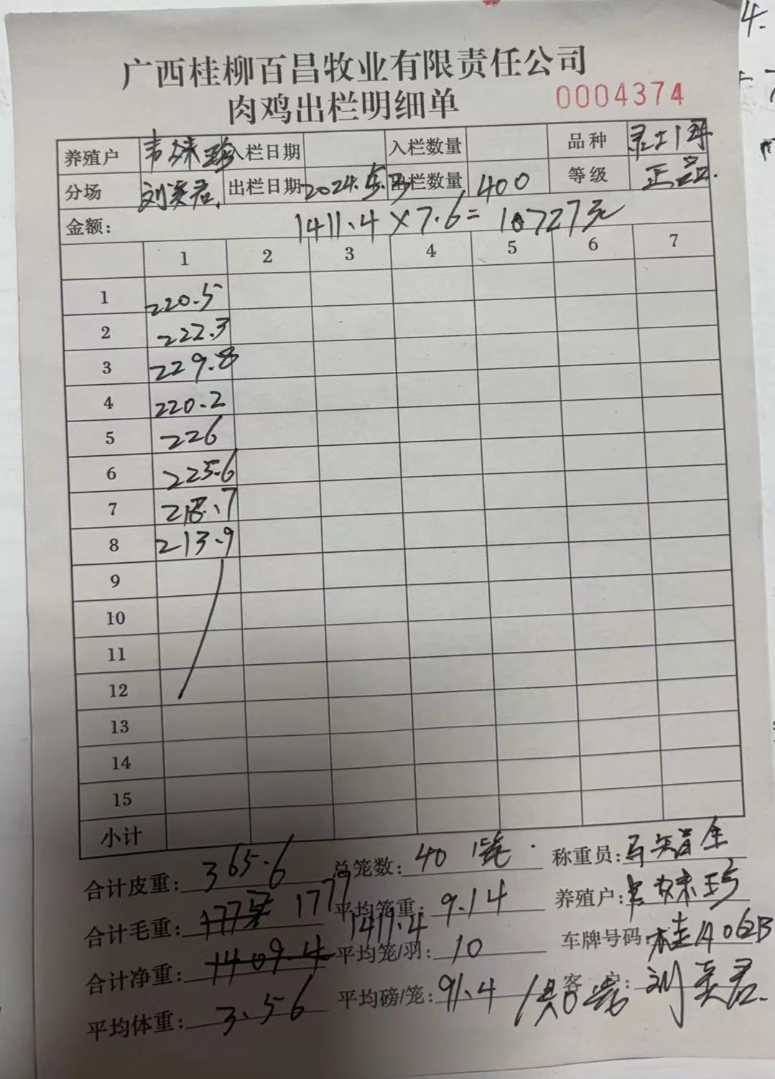 广西桂柳百昌牧业有限责任公司
肉鸡出栏明细单 0004374
养殖户 韦妹珍 入栏日期 入栏数量 品种
分场 刘英君 出栏日期 2024.5. 出栏数量 400 等级 正品
金额: 1411.4×7.6=10727元
1 2 3 4 5 6 7
1 220.5
2 222.3
3 229.8
4 220.2
5 226
6 225.6
7 218.7
8 213.9
9
10
11
12
13
14
15
小计
合计皮重: 365.6 总笼数: 40 笼 称重员:
合计毛重: 1777 平均笼重: 9.14 养殖户: 韦妹珍
合计净重: 1409.4 1411.4 平均笼/羽: 10 车牌号码: 桂A062B
平均体重: 3.56 平均磅/笼: 91.4 客户: 刘英君